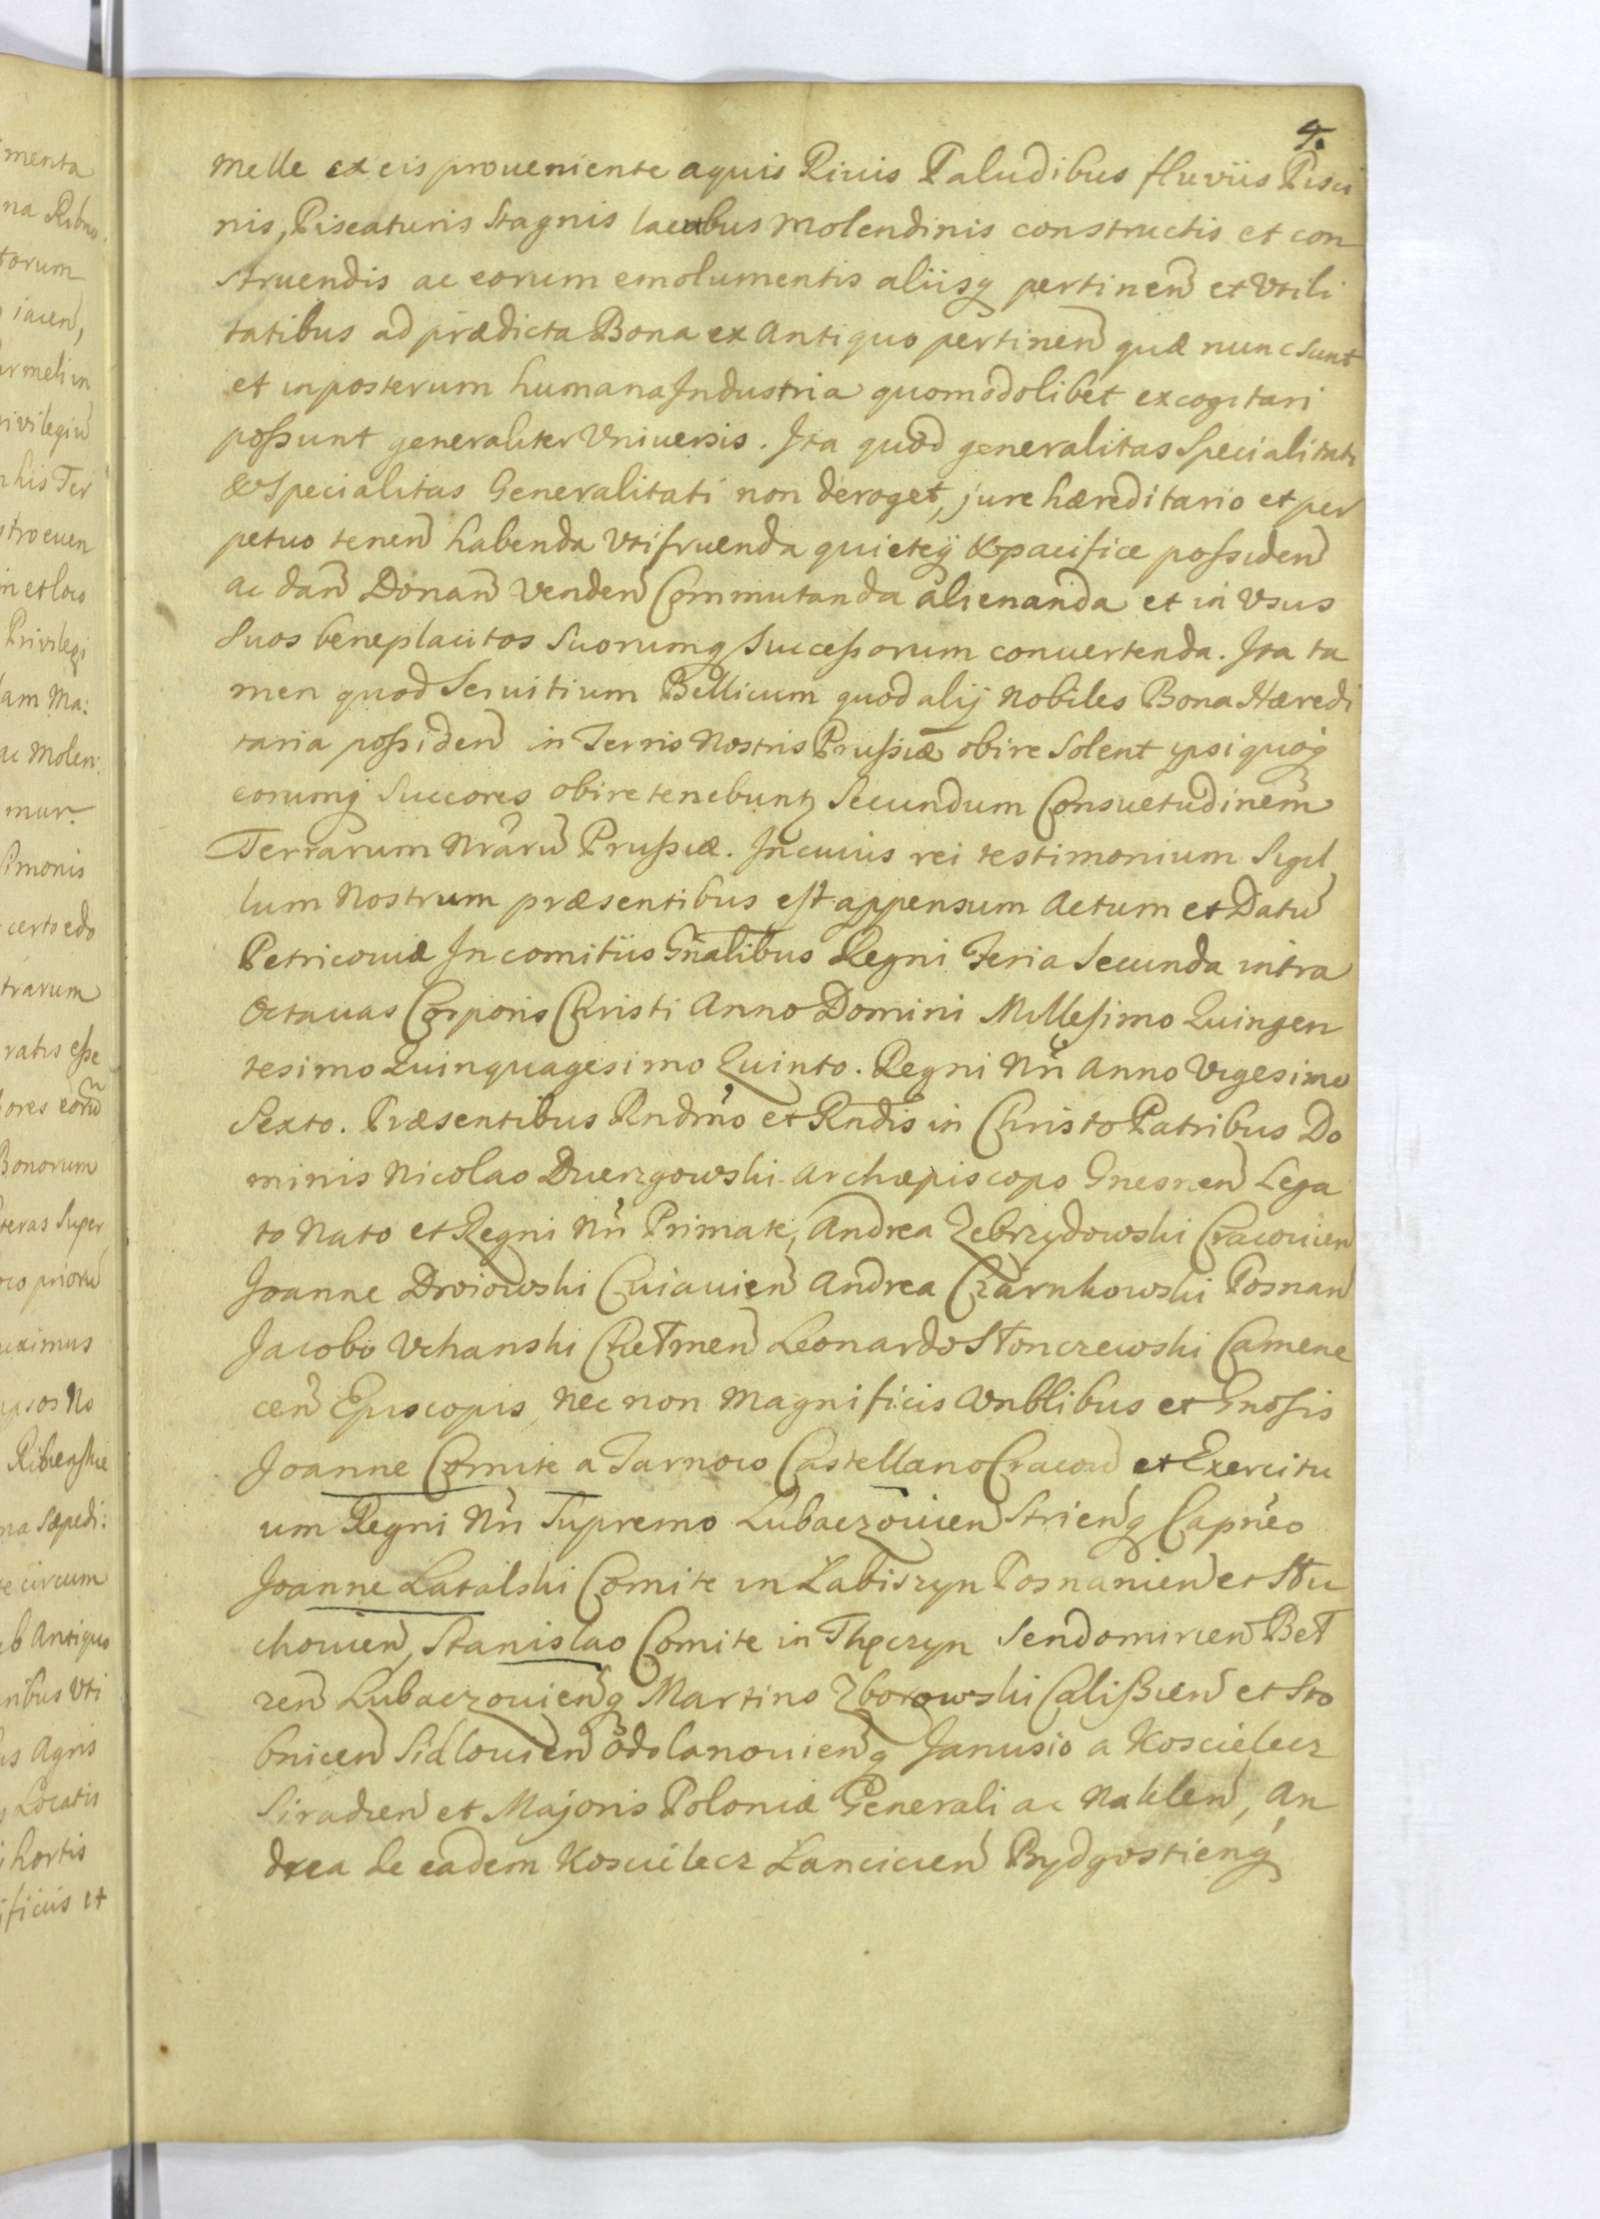 4.
menta
melle ex eis proueniente aquis Riuis Paludibus fluviis Pisci
nis, Piscaturis Stagnis lacubus molendinis constructis et con
struendis ac eorum emolumentis aliisq pertinen et Vtili
tatibus ad prædicta Bona ex Antiquo pertinen quæ nunc sunt
et inposterum humana Industria quomodolibet excogitari
possunt generaliter Vniuersis. Ita quod generalitas Specialitati
& Specialitas Generalitati non deroget, jure hæreditario et per
petuo tenen habenda Vtifruenda quieteq & pacifice possiden
ac dan Donan Venden Commutanda alienanda et in Vsus
Suos beneplacitos Suorumq Successorum conuertenda. Ita ta
men quod Seruitium Bellicum quod alij Nobiles Bona Hæredi
taria possiden in Terris Nostris Prussiæ obire Solent ipsi quoq
eorumq Succores obire tenebuntz Secundum Consuetudinem
Terrarum Nraru Prussiæ. In cuius rei testimonium Sigil
lum Nostrum præsentibus est appensum Actum et Datu
Petricouiæ In comitiis Gnalibus Regni Feria Secunda intra
Octauas Corporis Christi Anno Domini Millesimo Quingen
tesimo Quinquagesimo Quinto. Regni Nri Anno Vigesimo
Sexto. Præsentibus Rndmo et Rndis in Christo Patribus Do
minis Nicolao Dzierzgowski Archæpiscopo Gnesnen Lega
to Nato et Regni Nri Primate, Andrea Zebrzydowski Cracouien
Joanne Droiowski Cuiauien Andrea Czarnkowski Posnan
Jacobo Vchanski Chełmen Leonardo Słonczewski Camene
cen Episcopis nec non Magnificis Vnblibus et Gnosis
Joanne Comite a Tarnow Castellano Cracou et Exercitu
um Regni Nri Supremo Lubaczouien Strienq Capneo
Joanne Latalski Comite in Labiszyn Posnanien et Słu
chouien, Stanislao Comite in Thęczyn Sendomirien Beł
zen Lubaczouienq Martino Zborowski Calissien et Sto
bnicen Sidlouien Odolanouienq Janusio a Koscielecz
Siradien et Majoris Poloniæ Generali ac Naklen, An
drea de eadem Koscielecz Lancicien Bydgostienq